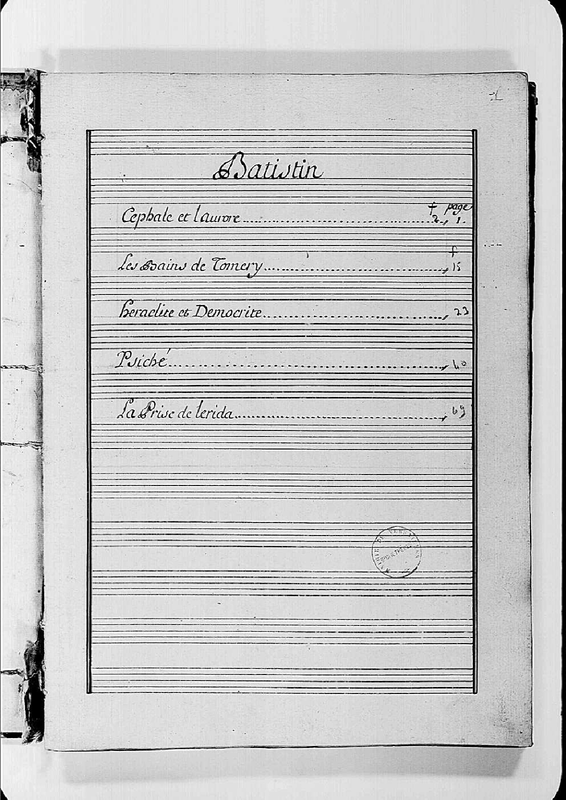 Batistin
page
Cephale et l'aurore 1.
Les Bains de Tomery 15
heraclite et Democrite 23
Psiché 40
La Prise de lerida